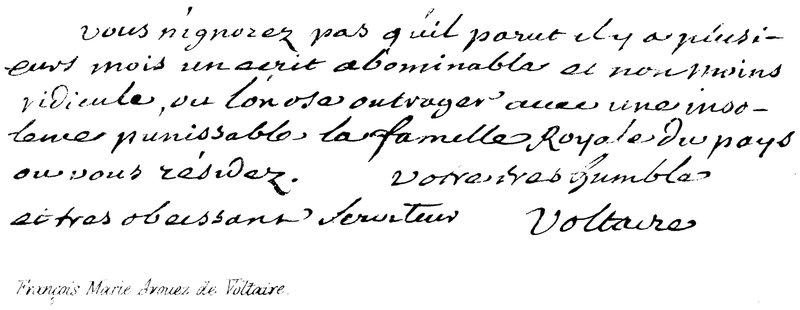 vous n'ignorez pas qu'il parut il y a plusi-
eurs mois un ecrit abominable et non moins
ridicule, ou l'on ose outrager avec une inso-
lence punissable la famille Royale du pays
ou vous résidez. votre tres humble
et tres obeissant serviteur Voltaire
François Marie Arouez de Voltaire.